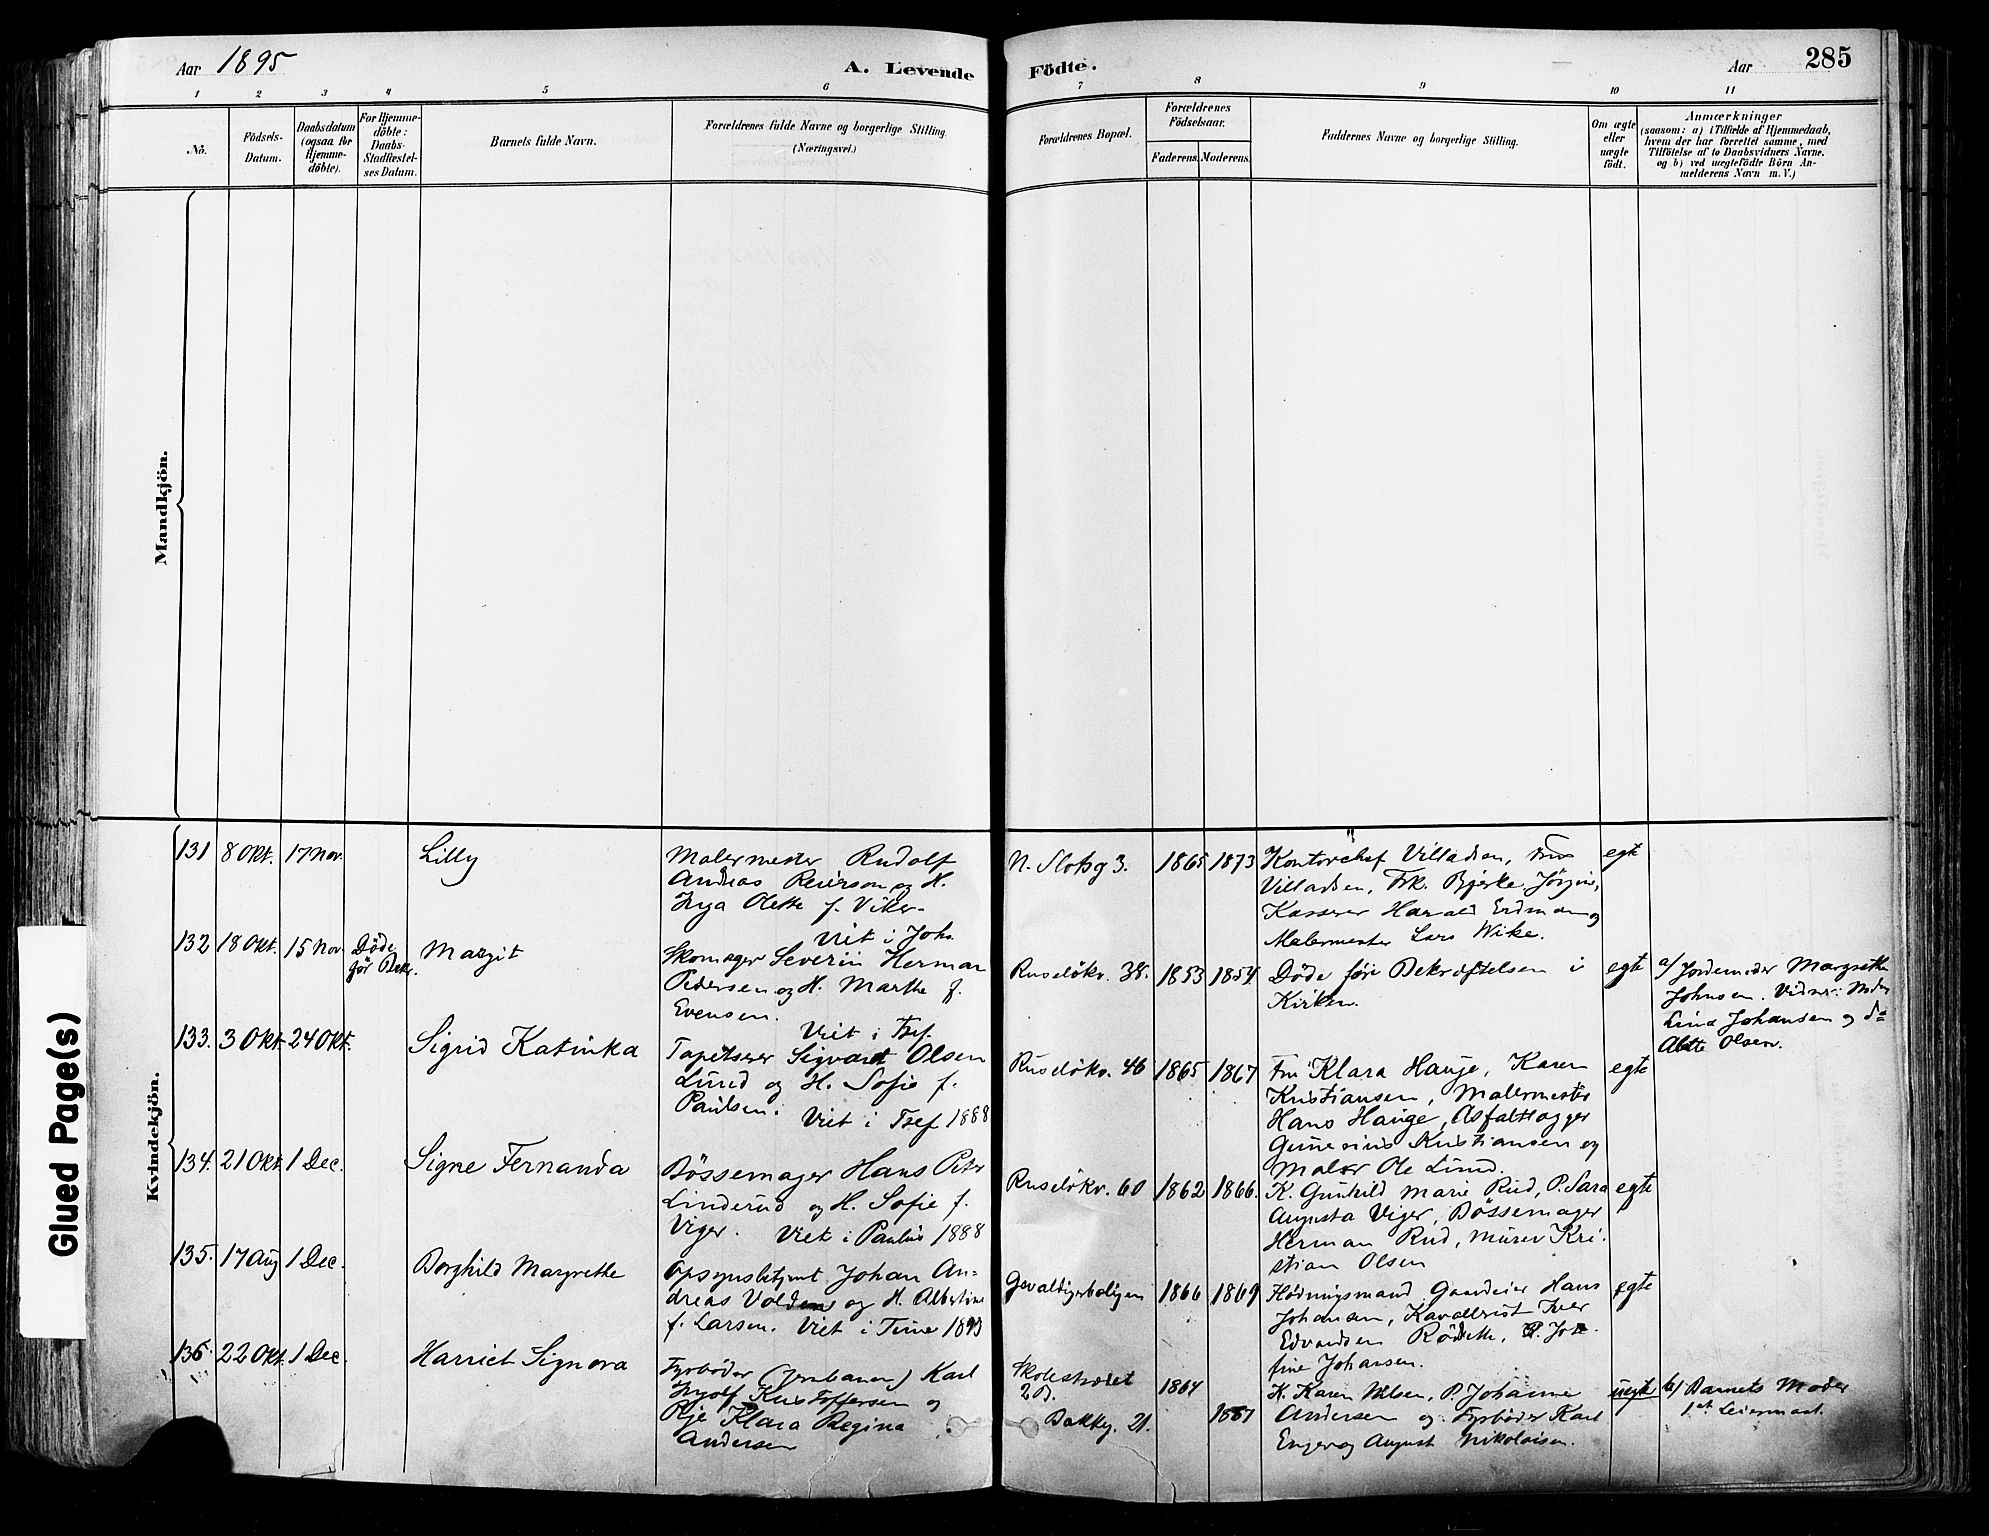 Aar 1895
A. Levende
Födte.
Aar
285
1 2 3 4 5 6 7 8 9 10 11
No.
Födsels-
Datum.
Daabsdatum
(ogsaa for
Hjemme-
döbte).
For Hjemme-
döbte:
Daabs-
Stadfæstel-
ses Datum.
Barnets fulde Navn.
Forældrenes fulde Navne og borgerlige Stilling.
(Næringsvei.)
Forældrenes Bopæl.
Forældrenes
Födselsaar.
Faderens. Moderens.
Faddernes Navne og borgerlige Stilling.
Om ægte
eller
uægte
födt.
Anmærkninger
(saasom: a) i Tilfælde af Hjemmedaab,
hvem der har forrettet samme, med
Tilföielse af to Daabsvidners Navne.
og b) ved uægtefödte Börn An-
melderens Navn m.V.)
Mandkjön.
Kvindekjön.
Glued Page(s)
131 8 Okt. 17 Nov. Lilly
Malermester Rudolf
Andreas Reierson og H.
Inga Olette f. Viker.
Viet i Joh.
N. Slotsg 3. 1865 1873
Kontorchef Villadsen, Frue
Villadsen, Frk. Bjerke Jörgine,
Kasserer Harald Erdman og
Malermester Lars Wike.
egte
132 18 Okt. 15 Nov. Döde
för Bekr. Margit
Skomager Severin Herman
Pedersen og H. Marthe f.
Evensen.
Viet i Tref.
Ruselökv. 38. 1853 1854
Döde för Bekræftelsen i
Kirken.
egte
a/ Jordemoder Margrethe
Johnsen. Vidner: Mad.
Lina Johansen og do
Alette Olsen.
133. 3 Okt. 24 Okt. Sigrid Katinka
Tapetserer Sigvart Olsen
Lund og H. Sofie f.
Paulsen.
Viet i Tref 1888
Ruselökv. 46 1865 1867
Fru Klara Hauge, Karen
Kristiansen, Malermester
Hans Hauge, Asfaltlægger
Gunerius Kristiansen og
Maler Ole Lund.
egte
134. 21 Okt. 1 Dec. Signe Fernanda
Bössemager Hans Peter
Linderud og H. Sofie f.
Viger. Viet i Paulus 1888
Ruselökv. 60 1862 1866.
K. Gunhild Marie Rud, P. Sara
Augusta Viger, Bössemager
Herman Rud, Murer Kri-
stian Olsen
egte
135. 17 Aug 1 Dec. Borghild Margrethe
Opsynsbetjent Johan An-
dreas Volden og H. Albertine
f. Larsen. Viet i Trine 1893
Gevaldigerboligen 1866 1869
Gaardeier Hans
Johansen, Kavallerist Iver
Edvardsen Rödseth, P. Jo-
fine Johansen.
egte
136. 22 Okt. 1 Dec. Harriet Signora
Fyrböder (Jernbanen) Karl
Ingolf Kristoffersen og
Pige Klara Regina
Andersen
Skolestrædet
2 B. 1864
Bakkg. 21. 1867
H. Karen Nilsen, P. Johanne
Andersen og Fyrböder Karl
Enger og August Nikolaisen.
uegte
b/ Barnets Moder
1st Leiermaal.